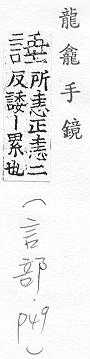 龍龕手鏡
所恚正恚二
反諉｜累也
（言部．P49）